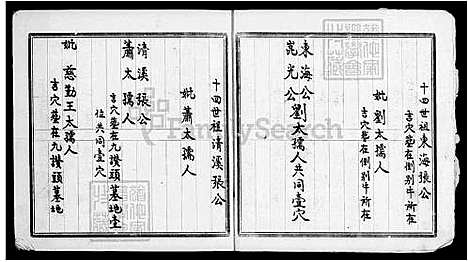 十四世祖東海張公
吉穴塟在倒別牛所在
妣劉太孺人
吉穴塟在倒別牛所在
東海公
崑光公劉太孺人共同壹穴
十四世祖清溪張公
妣蕭太孺人
清溪張公
蕭太孺人
吉穴塟在九讚頭墓地壹
位共同壹穴
妣慈勤王太孺人
吉穴塟在九讚頭墓地
FamilySearch